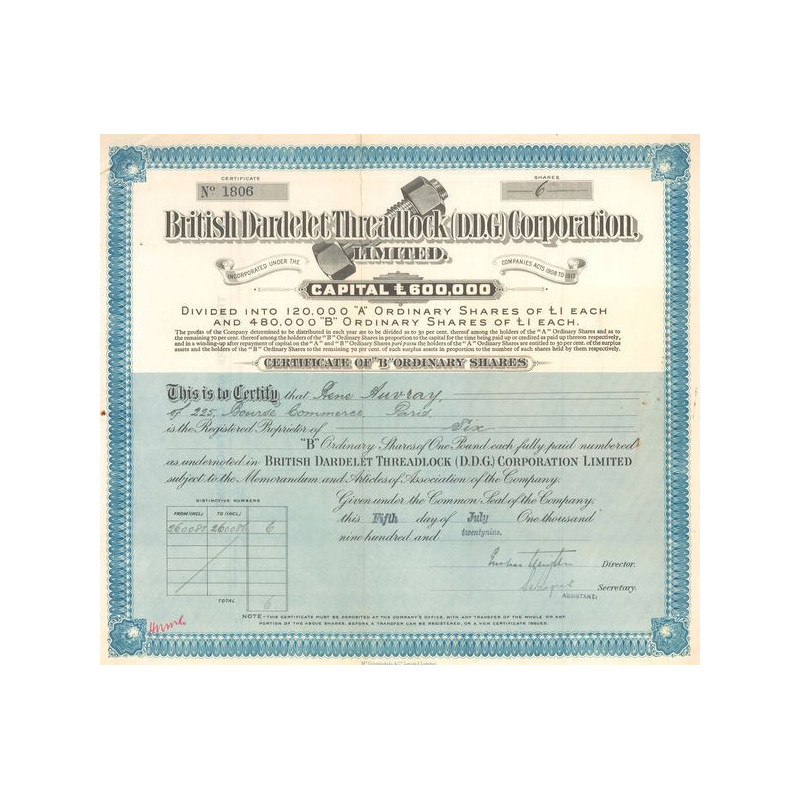 CERTIFICATE
Nº 1806
SHARES
6
British Dardelet Threadlock (D.D.G.) Corporation,
LIMITED.
INCORPORATED UNDER THE
COMPANIES ACTS 1908 TO 1917
CAPITAL £600,000
DIVIDED INTO 120,000 "A" ORDINARY SHARES OF £1 EACH
AND 480,000 "B" ORDINARY SHARES OF £1 EACH.
The profits of the Company determined to be distributed in each year are to be divided as to 30 per cent. thereof among the holders of the "A" Ordinary Shares and as to
the remaining 70 per cent. thereof among the holders of the "B" Ordinary Shares in proportion to the capital for the time being paid up or credited as paid up thereon respectively,
and in a winding-up after repayment of capital on the "A" and "B" Ordinary Shares pari passu the holders of the "A" Ordinary Shares are entitled to 30 per cent. of the surplus
assets and the holders of the "B" Ordinary Shares to the remaining 70 per cent. of such surplus assets in proportion to the number of such shares held by them respectively.
CERTIFICATE OF "B" ORDINARY SHARES
This is to Certify that Rene Auvray,
of 225, Bourse Commerce, Paris
is the Registered Proprietor of Six
"B" Ordinary Shares of One Pound each fully paid numbered
as undernoted in BRITISH DARDELET THREADLOCK (D.D.G.) CORPORATION LIMITED
subject to the Memorandum and Articles of Association of the Company.
DISTINCTIVE NUMBERS
FROM (INCL.) TO (INCL.)
6
TOTAL
6
Given under the Common Seal of the Company,
this Fifth day of July One thousand
nine hundred and twentynine.
Director.
Secretary.
ASSISTANT
NOTE—THIS CERTIFICATE MUST BE DEPOSITED AT THE COMPANY'S OFFICE, WITH ANY TRANSFER OF THE WHOLE OR ANY
PORTION OF THE ABOVE SHARES, BEFORE A TRANSFER CAN BE REGISTERED, OR A NEW CERTIFICATE ISSUED.